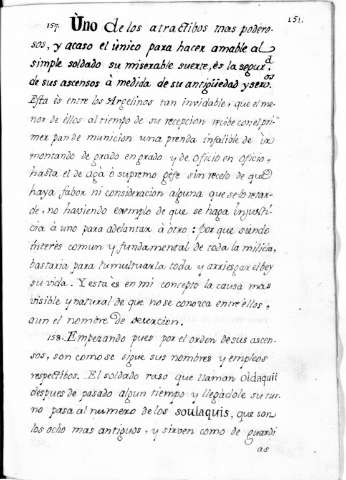 151.
157. Uno de los atractibos mas podero-
sos, y acaso el único para hacer amable al
simple soldado su miserable suerte, és la segurd.
de sus ascensos à medida de su antigüedad y serv.os
Esta és entre los Argelinos tan invidable, que el me-
nor de éllos al tiempo de su recepcion recibe con el pri-
mer pan de municion una prenda infalible de ir
montando de grado en grado y de oficio en oficio,
hasta el de Agà ò supremo gefe sin recelo de que
haya fabor ni consideracion alguna que se lo retar-
de, no haviendo exemplo de que se haga injusti-
cia à uno para adelantar à otro: por que siendo
interes comun y fundamental de toda la milicia,
bastaria para tumultuarla toda y arriesgar el bey
su vida. Y esta es en mi concepto la causa mas
visible y natural de que no se conozca entre ellos,
aun el nombre de desercion.
158. Empezando pues por el orden de sus ascen-
sos, son como se sigue sus nombres y empleos
respectibos. El soldado raso que llaman oldaquii
despues de pasado algun tiempo y llegadole su tur-
no pasa al numero de los soulaquis, que son
los ocho mas antiguos, y sirven como de guardi
as